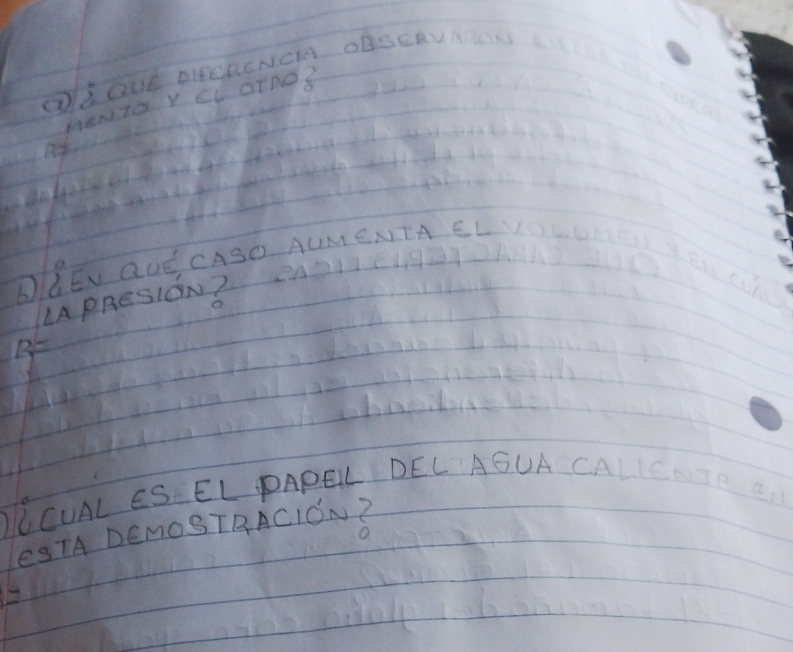 a) ¿QUÉ DIFERENCIA OBSERVARON
MENTO Y EL OTRO?
R=
b) ¿EN QUÉ CASO AUMENTA EL VOLUMEN Y EN CUAL
LA PRESIÓN?
R=
) ¿CUAL ES EL PAPEL DEL AGUA CALIENTE EN
ESTA DEMOSTRACIÓN?